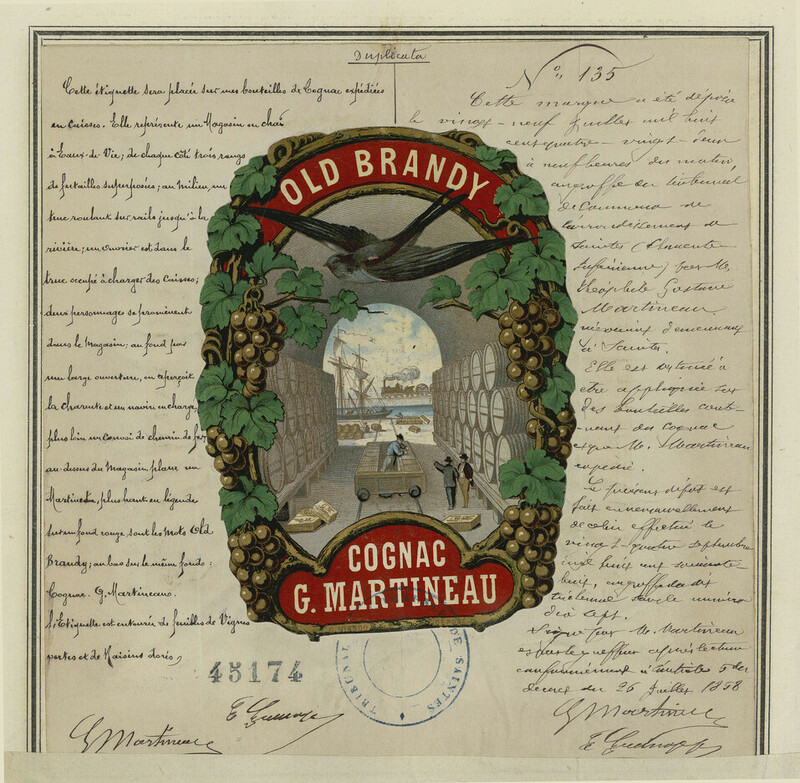 Duplicata
Cette étiquette sera placée sur mes bouteilles de Cognac expédiées
en Caisses. Elle représente un Magasin ou chai
à Eaux-de-Vie; de chaque côté trois rangs
de futailles superposées; au milieu, un
truc roulant sur rails jusqu'à la
rivière; un ouvrier est dans le
truc occupé à charger des Caisses;
deux personnages se promènent
dans le Magasin; au fond par
une large ouverture, on aperçoit
la charente et un navire en charge,
plus loin un convoi de chemin de fer,
au-dessus du Magasin plane un
Martinet, plus haut en légende
sur un fond rouge sont les Mots Old
Brandy; au bas sur le même fond:
Cognac. G. Martineau.
L'Etiquette est entourée de feuilles de Vignes
vertes et de Raisins dorés,
N° 135
Cette marque a été déposée
le vingt-neuf Juillet mil huit
cent quatre-vingt-deux
à neuf heures du matin,
au greffe du tribunal
de Commerce de
l'arrondissement de
Saintes (Charente
Inférieure) par M.
Théophile Gustave
Martineau
négociant demeurant
à Saintes.
Elle est destinée à
être appliquée sur
des bouteilles conte-
nant du cognac
que M. Martineau
expédie.
Le présent dépôt est
fait en renouvellement
de celui effectué le
vingt-quatre Septembre
mil huit cent soixante-
huit, au greffe du dit
tribunal sous le numéro
dix sept.
Signé par M. Martineau
et par le greffier après lecture
conformément à l'article 5 du
décret du 26 Juillet 1858
OLD BRANDY
COGNAC
G. MARTINEAU
45174
TRIBUNAL DE SAINTES
G Martineau
G Martineau